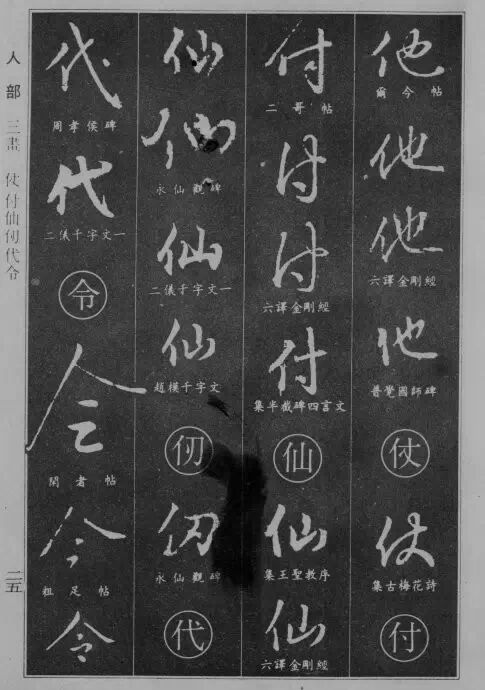 人部 三畫 仗付仙仞代令
二五
他
爾今帖
他
他
六譯金剛經
他
普覺國師碑
仗
仗
集古梅花詩
付
付
二哥帖
付
付
六譯金剛經
付
集半截碑四言文
仙
仙
集王聖教序
仙
六譯金剛經
仙
仙
永仙觀碑
仙
二儀千字文一
仙
趙模千字文
仞
仞
永仙觀碑
代
代
周孝侯碑
代
二儀千字文一
令
令
閑者帖
令
粗足帖
令